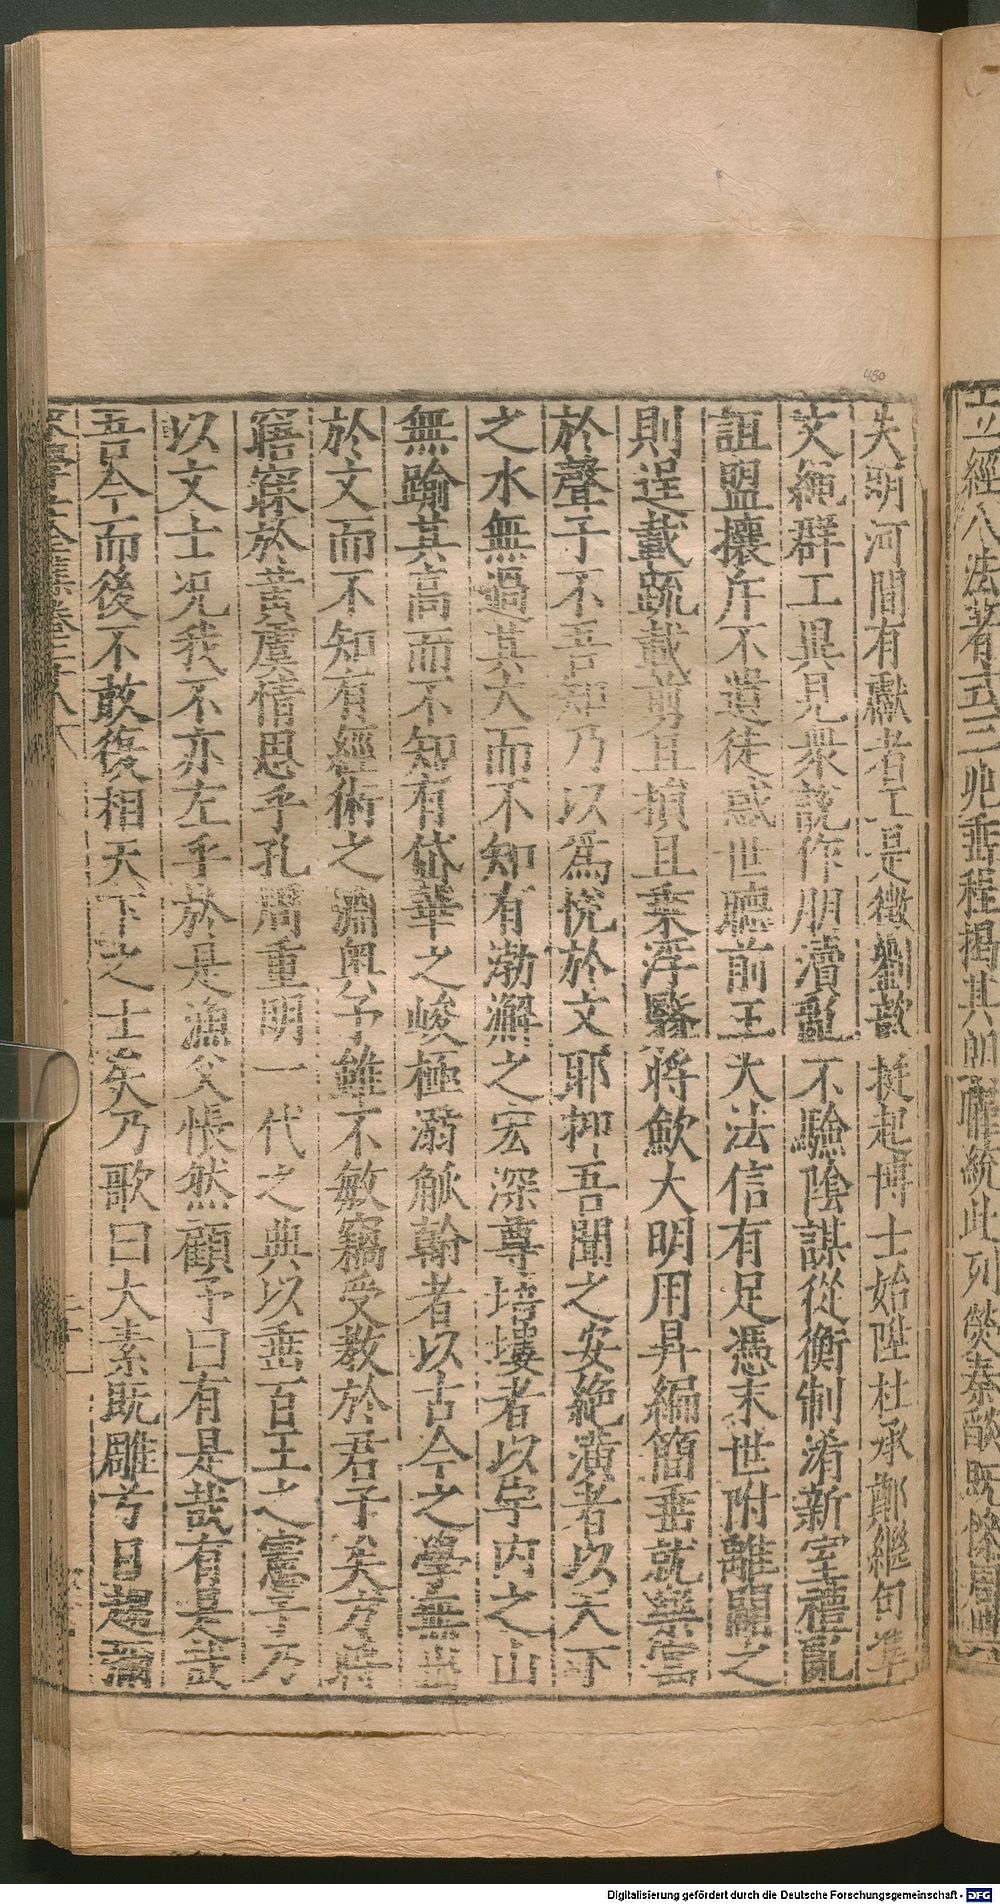 立經八法著式三
失明河間有獻者工是徵劉歆挺起博士始陞杜承鄭繼句準
文絶群工異見衆説作朋瀆亂不驗陰謀從衡制淆新室禮亂
詛盟攘斥不遺徒惑世聽前王大法信有足憑末世附離闢之
則逞載疏載剪且損且乗浮翳將歛大明用昇編簡垂就樂
於聲子不吾知乃以爲悦於文耶抑吾聞之安絶潢者以天下
之水無過其大而不知有渤澥之宏深尊培塿者以宇内之山
無踰其高而不知有岱華之峻極溺觚翰者以古今之學無出
於文而不知有經術之淵奥予雖不敏竊受教於君子矣方將
寤寐於黄虞情思乎孔周重明一代之典以垂百王之憲子乃
以文士況我不亦左乎於是漁父悵然顧予曰有是哉有是哉
吾今而後不敢復相天下之士矣乃歌曰大素既雕兮日趨瀰
490
Digitalisierung gefördert durch die Deutsche Forschungsgemeinschaft - DFG